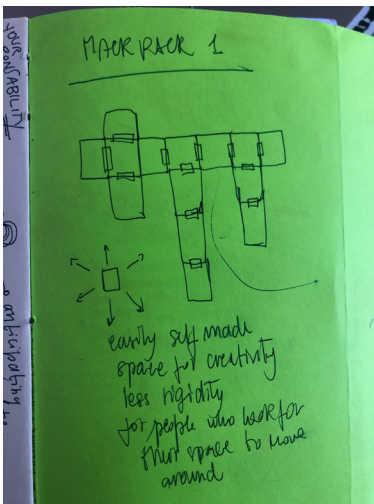 MACK PACK 1
easily self made
space for creativity
less rigidity
for people who look for
their space to move
around
YOUR
ONSABILITY
anticipating